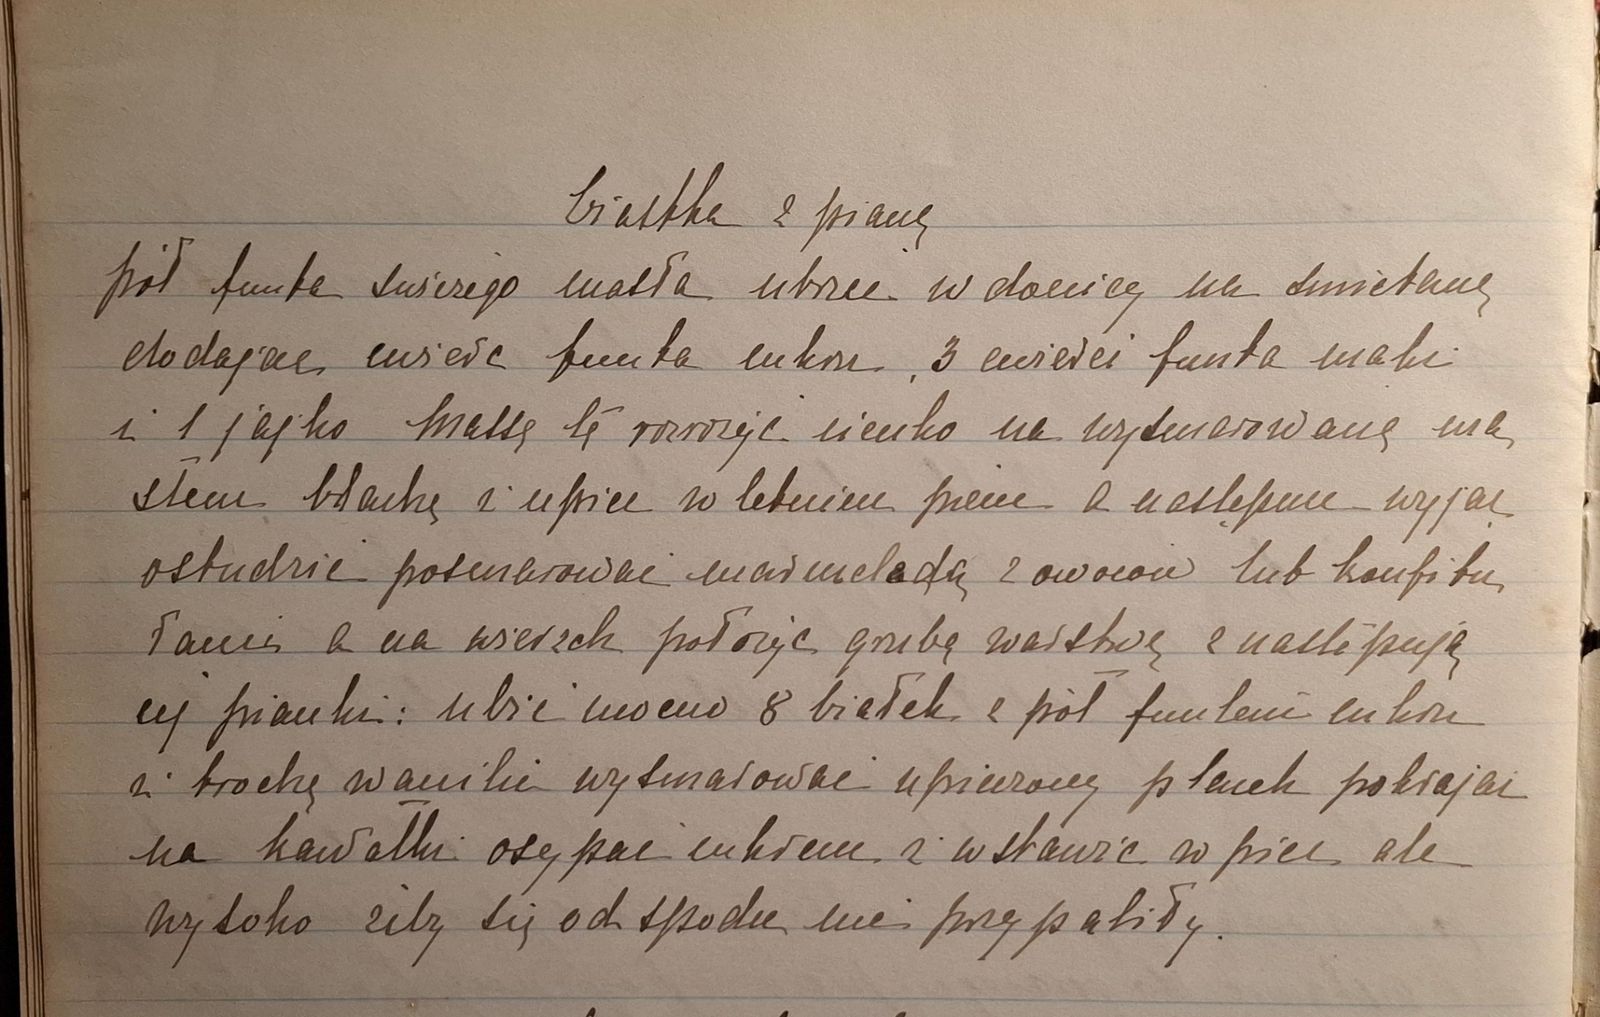 Ciastka z pianą
pół funta świeżego masła utrzeć w donicy na śmietanę
dodając ćwierć funta cukru, 3 ćwierci funta mąki
i 1 jajko Massę tę rozłożyć cienko na wysmarowaną ma
słem blachę i upiec w letnim piecu a następnie wyjąć
ostudzić posmarować marmeladą z owoców lub konfitu
rami a na wierzch położyć grubą warstwę z następują
cej pianki: ubić mocno 8 białek z pół funtem cukru
i trochę wanilii wysmarować upieczony placek pokrajać
na kawałki osypać cukrem i wstawić w piec ale
wysoko żeby się od spodu nie przypaliły.